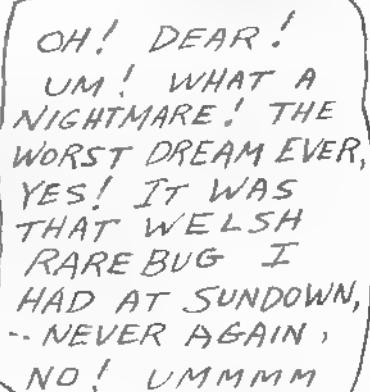 OH! DEAR!
UM! WHAT A
NIGHTMARE! THE
WORST DREAM EVER,
YES! IT WAS
THAT WELSH
RAREBUG I
HAD AT SUNDOWN,
-- NEVER AGAIN,
NO! UMMMM